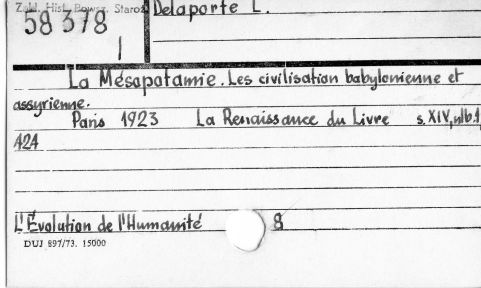 Zakł. Hist. Powsz. Staroż
58 378
I
Delaporte L.
La Mésopotamie. Les civilisation babylonienne et
assyrienne.
Paris 1923 La Renaissance du Livre s. XIV, nlb. 1,
424
L'Évolution de l'Humanité 8
DUJ 897/73. 15000